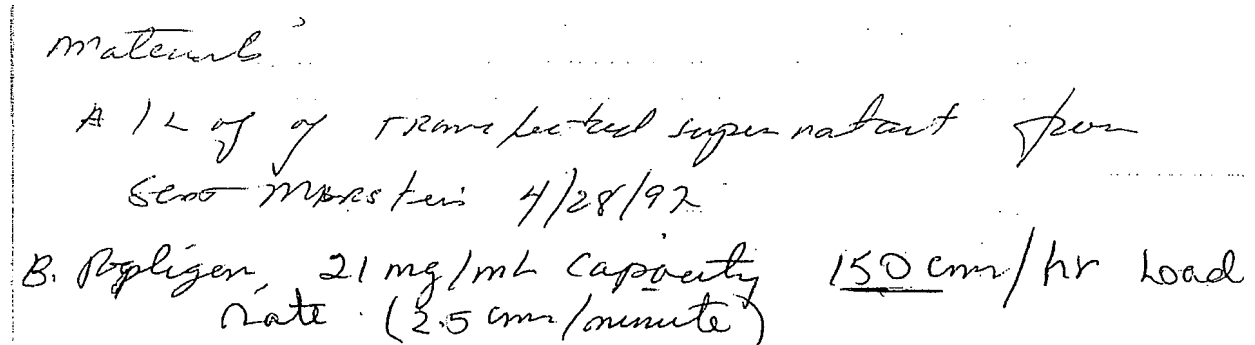 Materials
A 1L of of transfected supernatant from
4/28/92
B. Repligen, 21 mg/mL capacity 150 cm/hr Load
rate (2.5 cm/minute)